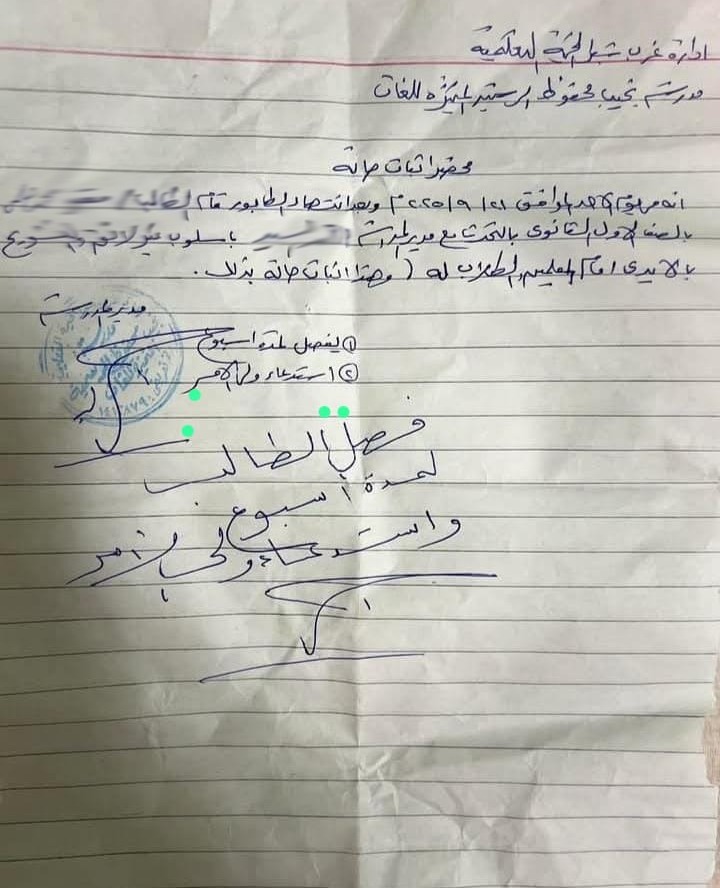 ادارة غرب شبرا الخيمة التعليمية
مدرسة نجيب محفوظ الرسمية المتميزة للغات
محضر اثبات حالة
انه في يوم الاحد الموافق ٢٠٢٥/٩/٢١ م وبعد انتهاء الطابور قام الطالب /
بالصف الاول الثانوى بالتحدث مع مدير المدرسة باسلوب غير لائق
بالايدى امام المعلمين والطلاب له ( وهذا اثبات حالة بذلك .
مدير المدرسة
① يفصل لمدة اسبوع
② استدعاء ولى الامر
فصل الطالب
لمدة أسبوع
واستدعاء ولى الأمر